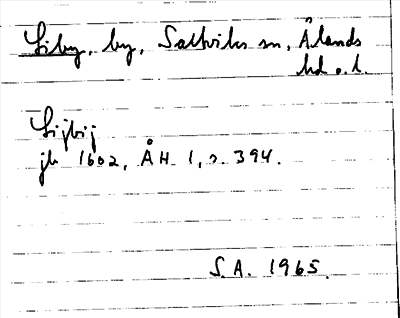 Liby, by, Saltviks sn, Ålands
hd o. l.
Lijbij
jb 1602, ÅH 1, s. 394.
S.A. 1965.